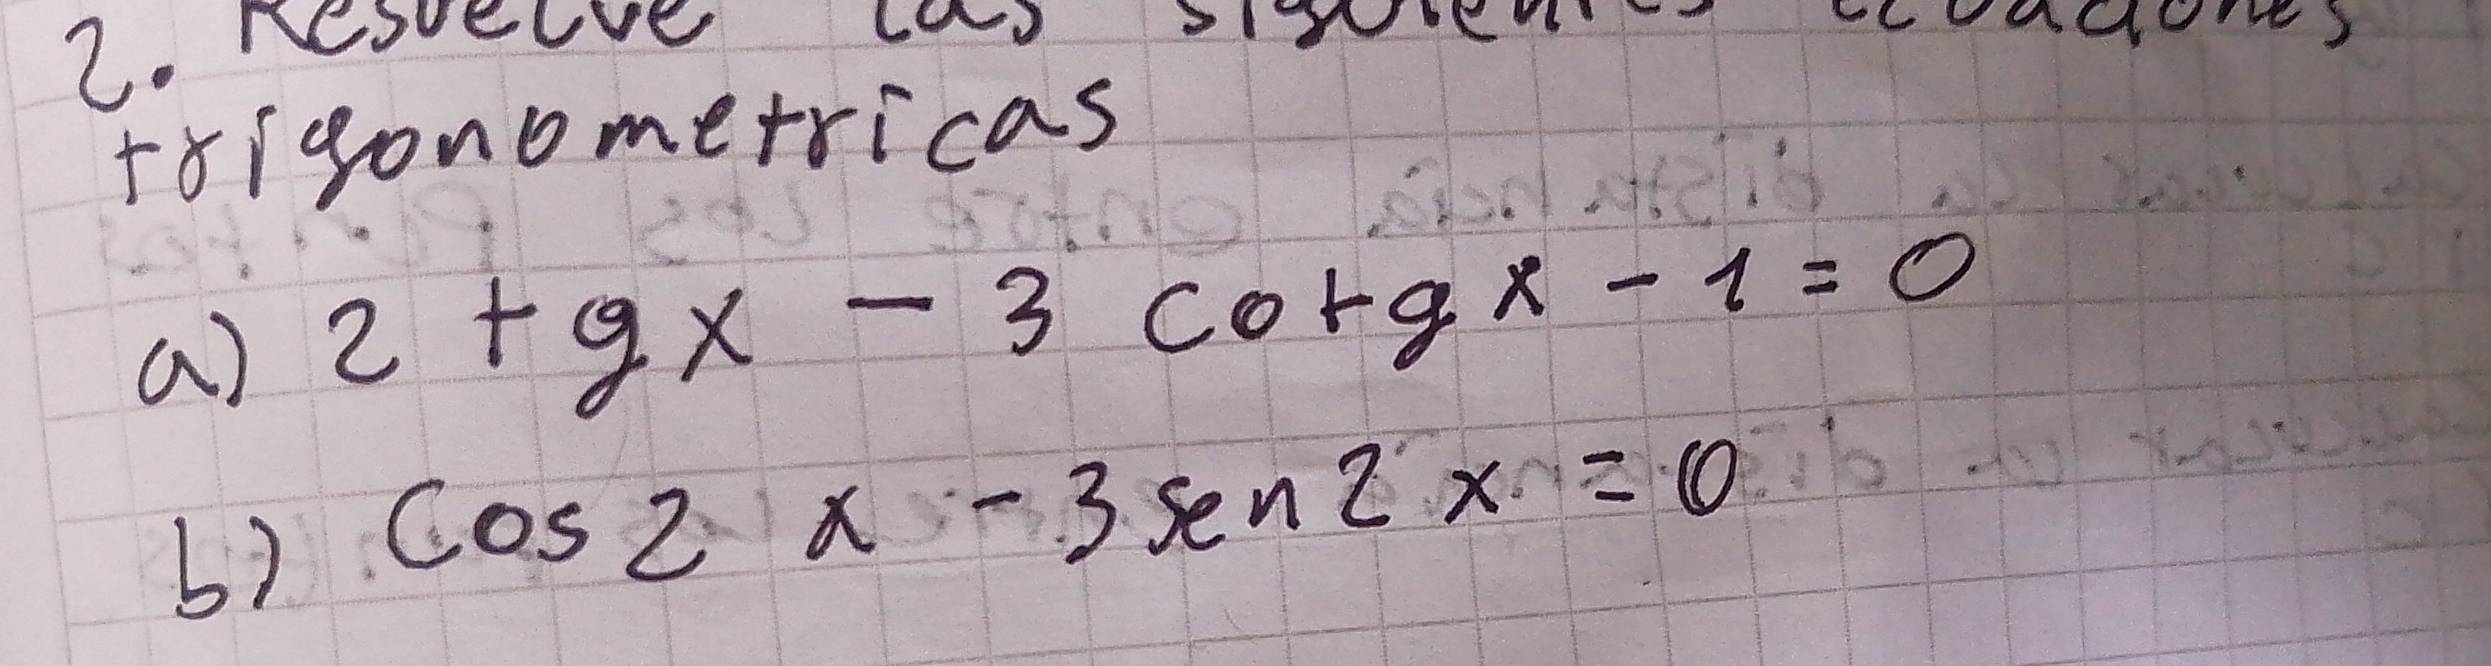 2. Resuelve las siguientes ecuaciones
trigonometricas
a) 2 tgx - 3 cotgx - 1 = 0
b) cos2 x - 3sen2x = 0